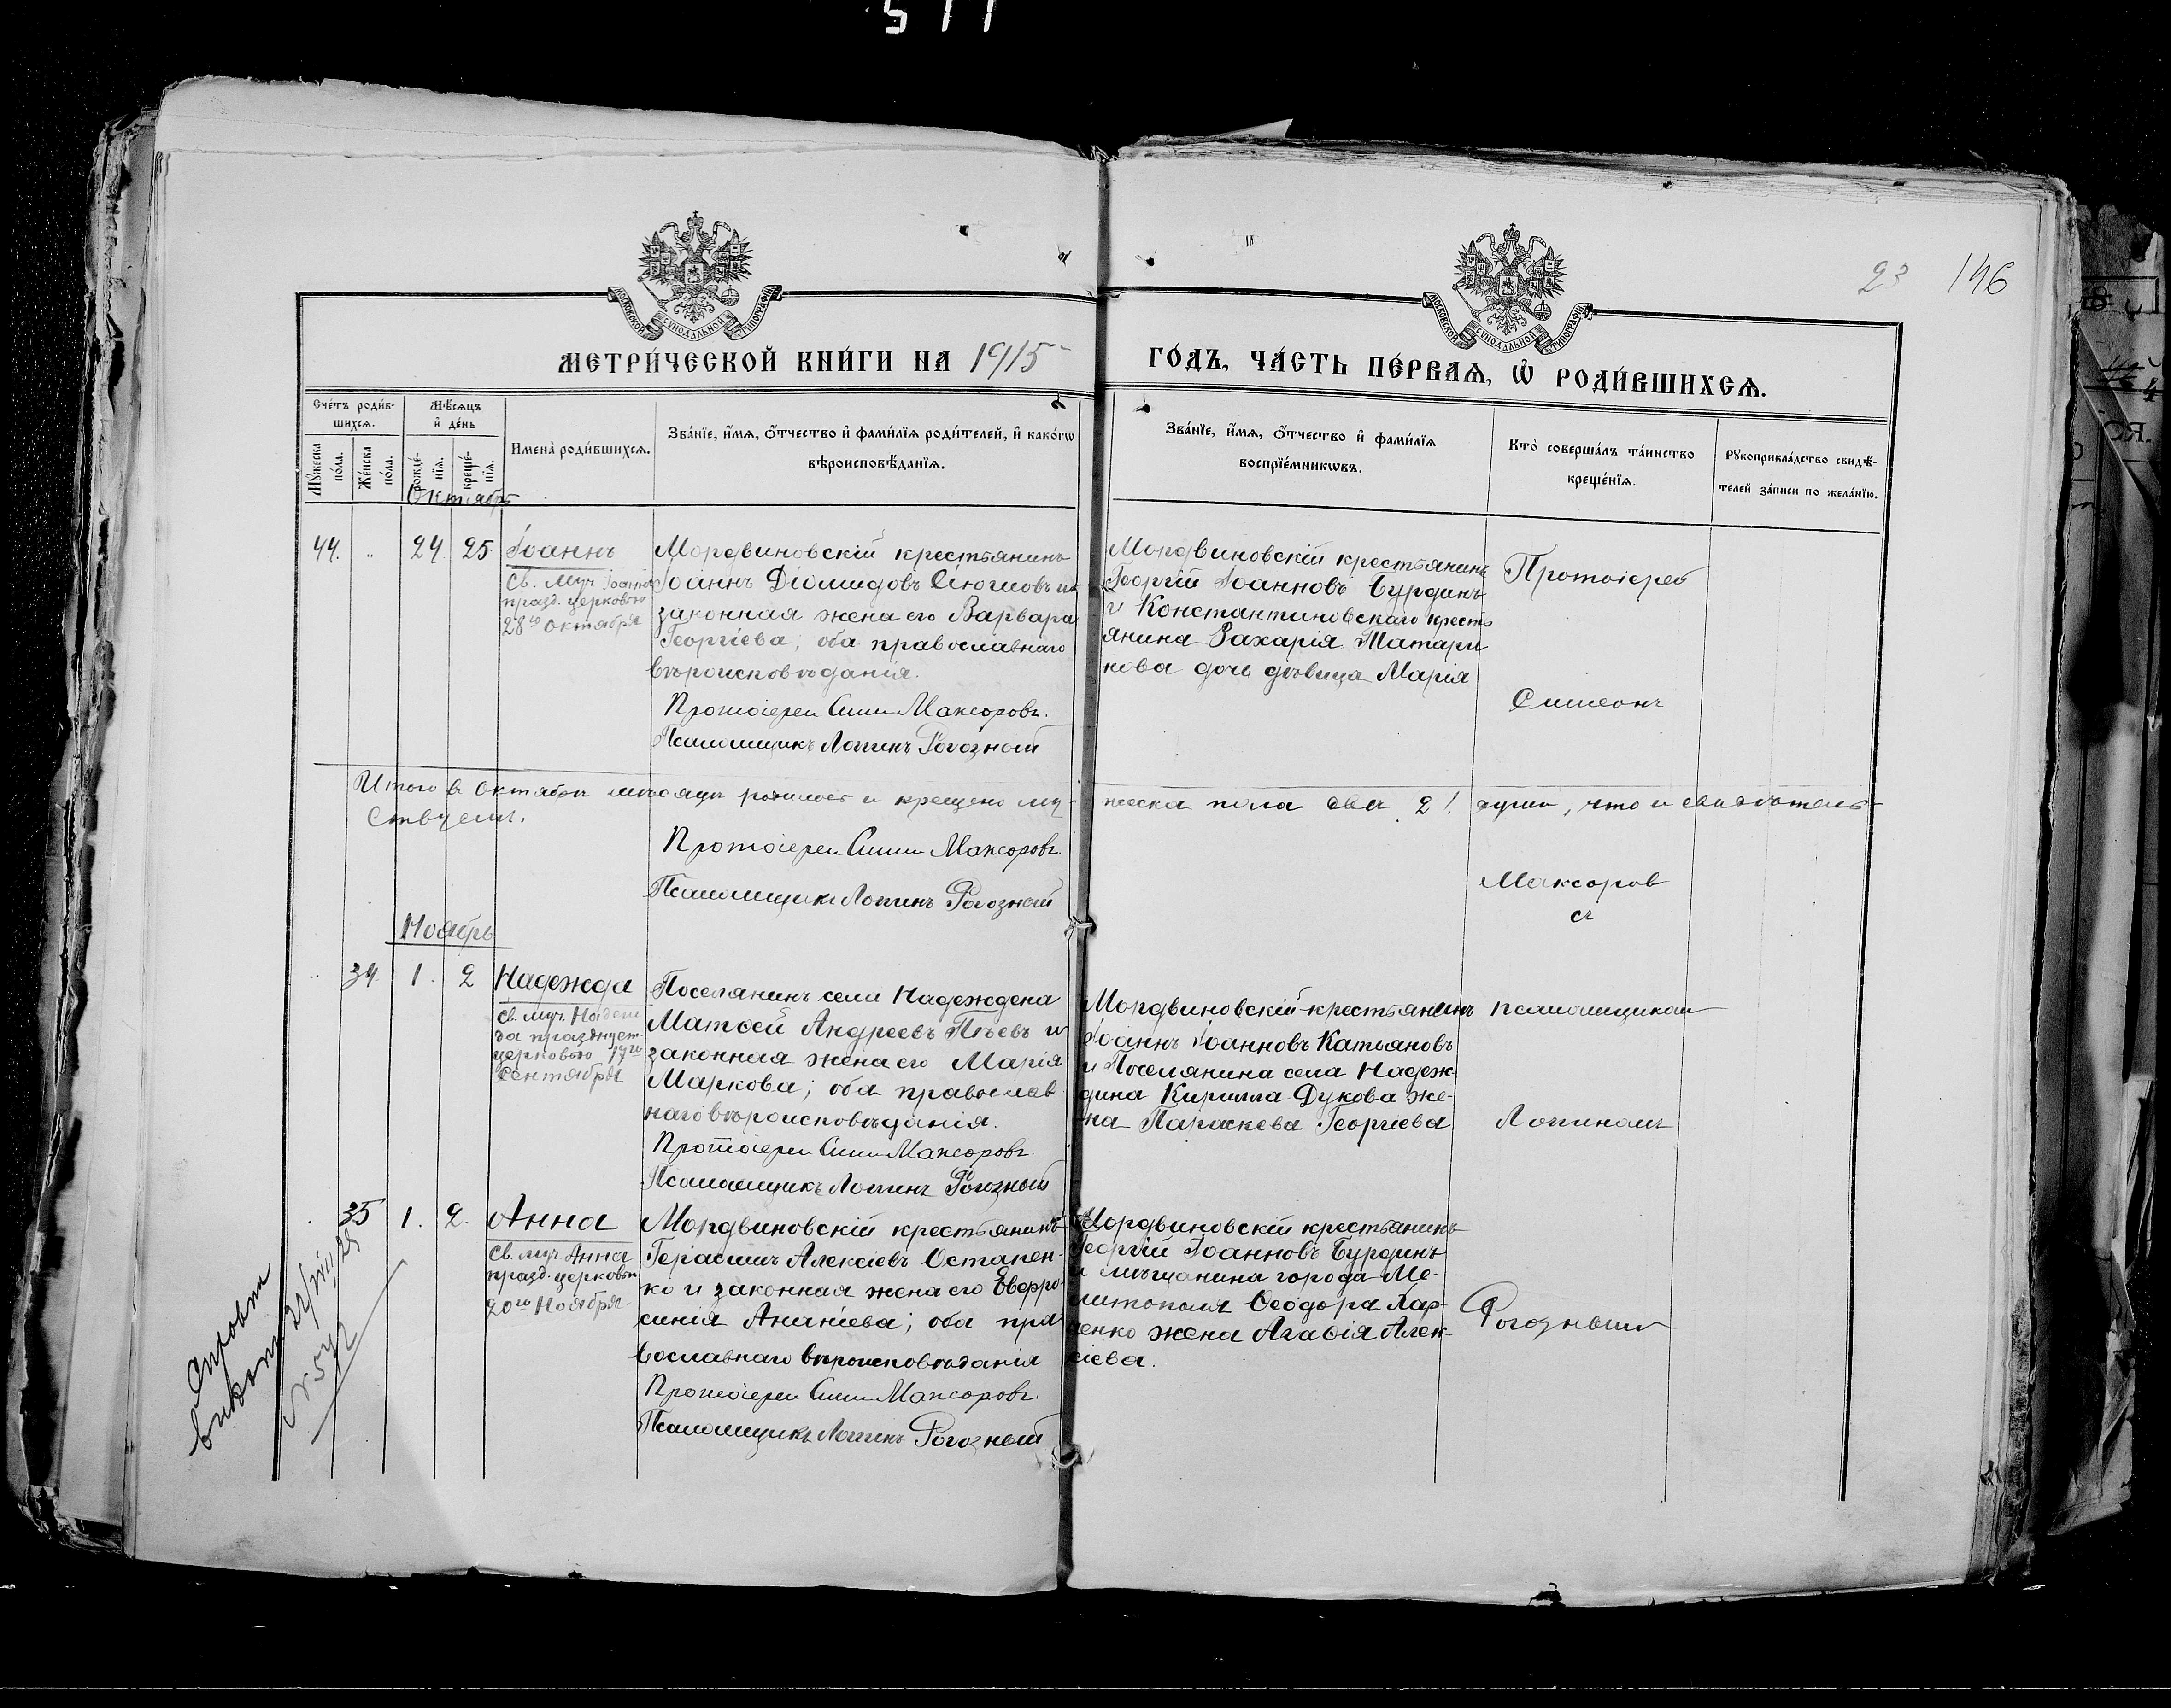 511
23 146
МОСКОВСКОЙ СУНОДАЛЬНОЙ ТИПОГРАФІИ
МОСКОВСКОЙ СУНОДАЛЬНОЙ ТИПОГРАФІИ
МЕТРИ́ЧЕСКОЙ КНИ́ГИ НА 1915
ГО́ДЪ, ЧА́СТЬ ПЕ́РВАѦ, Ѡ҆ РОДИ́ВШИХСѦ.
Сче́тъ роди́в-
шихсѧ.
Мꙋ́жеска
по́ла.
Же́нска
по́ла.
Мѣ́сѧцъ
и҆ де́нь
рожде́-
нїѧ.
креще́-
нїѧ.
Имена̀ роди́вшихсѧ.
Зва́нїе, и҆́мѧ, ѻ҆́тчество и҆ фами́лїѧ роди́телей, и҆ како́гѡ
вѣроисповѣ́данїѧ.
Зва́нїе, и҆́мѧ, ѻ҆́тчество и҆ фами́лїѧ
воспрїе́мникѡвъ.
Кто̀ соверша́лъ та́инство
креще́нїѧ.
Рꙋкоприкла́дство свидѣ́-
телей за́писи по жела́нїю.
Октябрь
44. „ 24. 25. Іоаннъ
Св. муч. Іоанна
празд. церковью
28го Октября
Мордвиновскій крестьянинъ
Іоаннъ Діомидовъ и
законная жена его Варвара
Георгіева; оба православнаго
вѣроисповѣданія.
Протоіерей Симеонъ Максоровъ.
Псаломщикъ Логинъ Рогозный
Мордвиновскій крестьянинъ
Георгій Іоанновъ Бурдинъ
и Константиновскаго кресть
янина Захарія Татари
нова дочь дѣвица Марія
Протоіерей
Симеонъ
Итого в Октябрѣ мѣсяцѣ родилось и крещено му-
жеска пола два 2! души, что и свидѣтель-
ствуемъ.
Протоіерей Симеонъ Максоровъ.
Псаломщикъ Логинъ Рогозный
Максоров
съ
Ноябрь
„ 34. 1. 2 Надежда
Св. муч. Надеж
да празднует
церковью 17го
Сентября
Поселянинъ села Надеждена
Матѳей Андреевъ и
законная жена его Марія
Маркова; оба православ
наго вѣроисповѣданія.
Протоіерей Симеонъ Максоровъ.
Псаломщикъ Логинъ Рогозный
Мордвиновскій крестьянинъ
Іоаннъ Іоанновъ Катьяновъ
и Поселянина села Надеж
дина Кирилла Дукова же-
на Параскева Георгіева
псаломщикомъ
Логиномъ
35 1. 2. Анна
Св. муч. Анна
празд. церковью
20го Ноября
Мордвиновскій крестьянинъ
Герасимъ Алексіевъ Остапен-
ко и законная жена его Евфро-
синія Ананіева; оба пра
вославнаго вѣроисповѣданія
Протоіерей Симеонъ Максоровъ.
Псаломщикъ Логинъ Рогозный
Мордвиновскій крестьянинъ
Георгій Іоанновъ Бурдинъ
и мѣщанина города Ме-
литополя Ѳеодора Хар-
ченко жена Агаѳія Алек-
сіева.
Рогознымъ